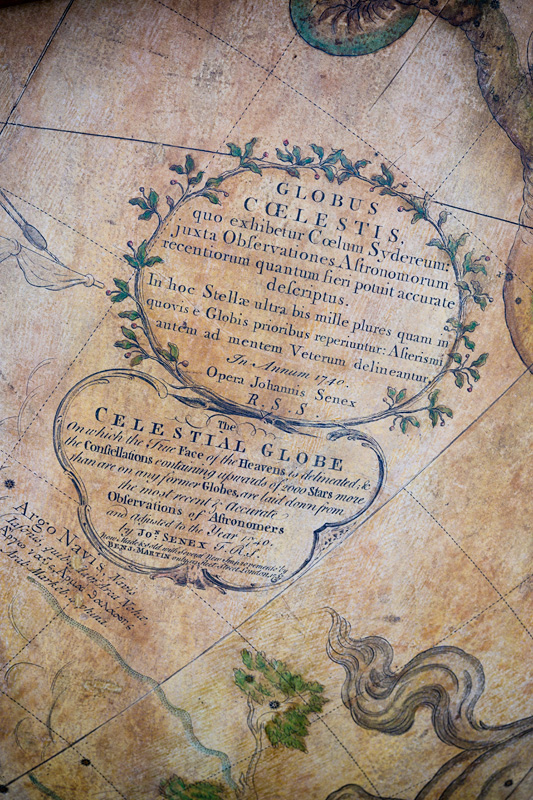 GLOBUS
CŒLESTIS.
quo exhibetur Cœlum Sydereum:
juxta Observationes Astronomorum
recentiorum quantum fieri potuit accurate
descriptus.
In hoc Stellæ ultra bis mille plures quam in
quovis è Globis prioribus reperiuntur: Asterismi
autem ad mentem Veterum delineantur.
In Annum 1740.
Opera Johannis Senex
R. S. S.
The
CELESTIAL GLOBE
On which the True Face of the Heavens is delineated, &
the Constellations containing upwards of 2000 Stars more
than are on any former Globes, are laid down from
the most recent & Accurate
Observations of Astronomers
and Adjusted to the Year 1740.
by Joⁿ. SENEX F.R.S.
Now Made & sold with several New Improvements by
BENJ. MARTIN in Fleet Street London
ARGO NAVIS